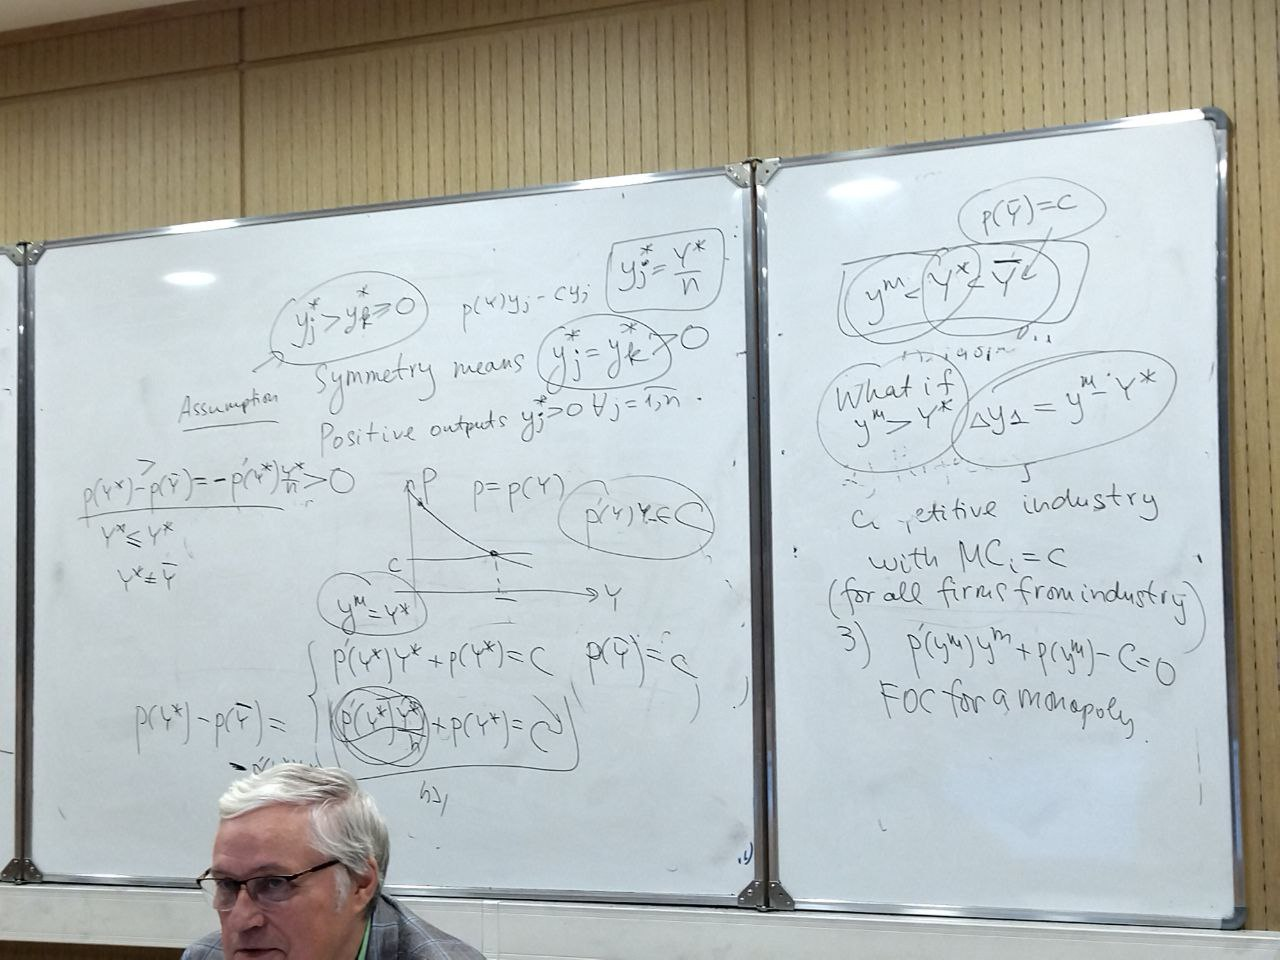 y_j^* > y_k^* ≥ 0
p(Y)y_j - cy_j
y_j^* = Y^*/n
Symmetry means y_j^* = y_k^* > 0
Assumption
Positive outputs y_j^* > 0 ∀ j = 1,n.
p(Y^*) - p(Ȳ) = -p'(Y^*) Y^*/n > 0
Y^* ≤ Y^*
Y^* ≤ Ȳ
P
p = p(Y)
C
Y
y^m = Y^*
p'(Y^*)Y^* + p(Y^*) = C
p(Ȳ) = C
p(Y^*) - p(Ȳ) =
p'(Y^*) Y^*/n + p(Y^*) = C
p(Ȳ) = C
y^m < Y^* < Ȳ
What if
y^m > Y^*
Δy_1 = y^m - Y^*
industry
with MC_i = C
(for all firms from industry)
3) p'(y^m)y^m + p(y^m) - C = 0
FOC for a monopoly.